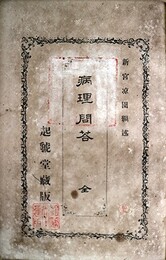 新宮凉園纂述
病理問答 全
起號堂藏版